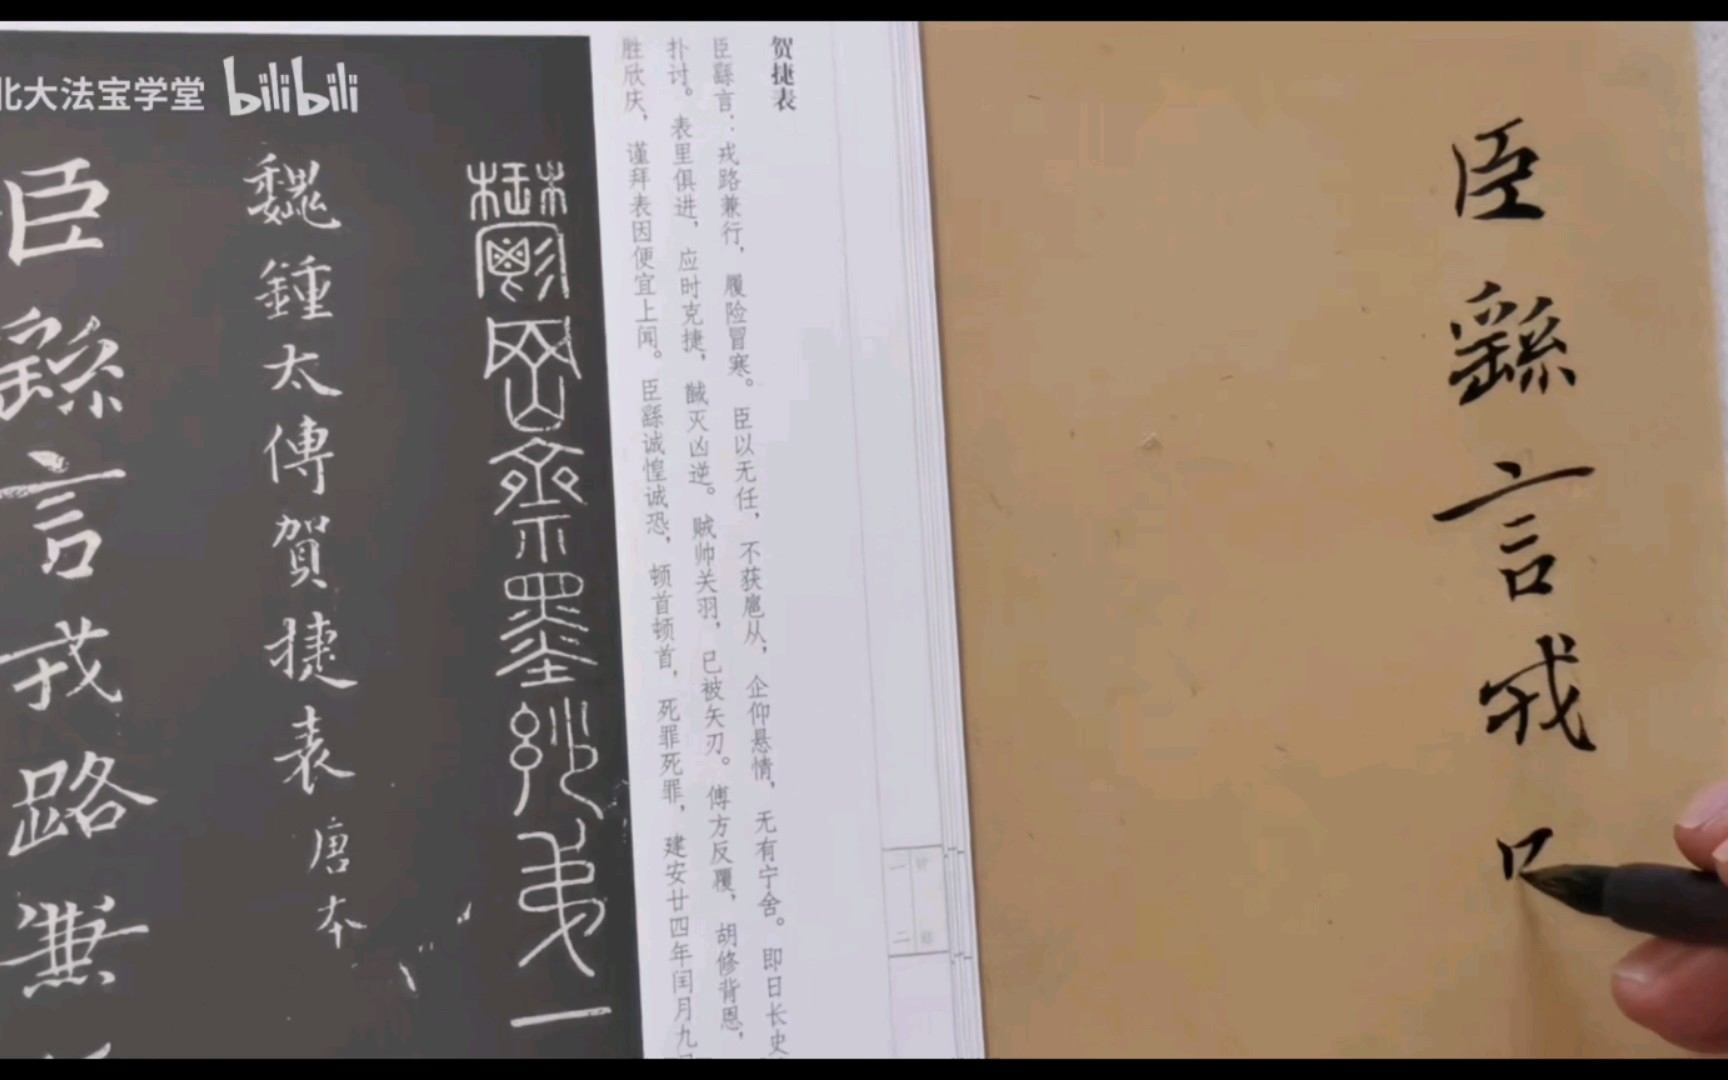 北大法宝学堂 bilibili
臣繇言戎
贺捷表
臣繇言：戎路兼行，履险冒寒。臣以无任，不获扈从，企仰悬情，无有宁舍。即日长史
扑讨。表里俱进，应时克捷，馘灭凶逆。贼帅关羽，已被矢刃。傅方反覆，胡修背恩，
胜欣庆，谨拜表因便宜上闻。臣繇诚惶诚恐，顿首顿首，死罪死罪，建安廿四年闰月九
鬱岡齋墨妙弟一
魏鍾太傅賀捷表 唐本
臣繇言戎路兼